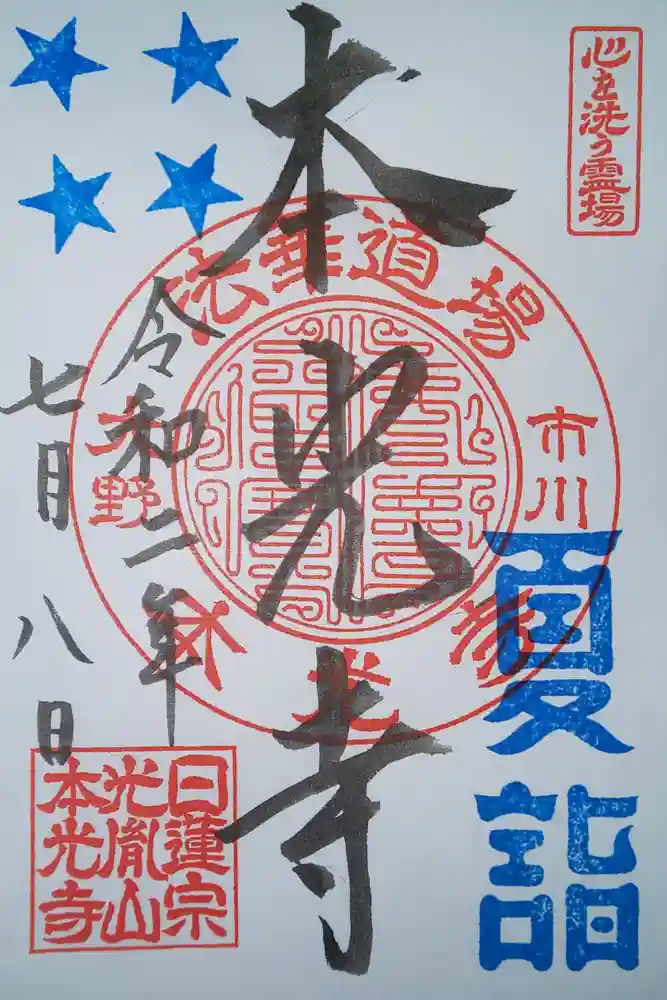 心を洗う霊場
本光寺
法華道場
市川
大野
本光寺
夏詣
令和二年
七月八日
日蓮宗
光胤山
本光寺